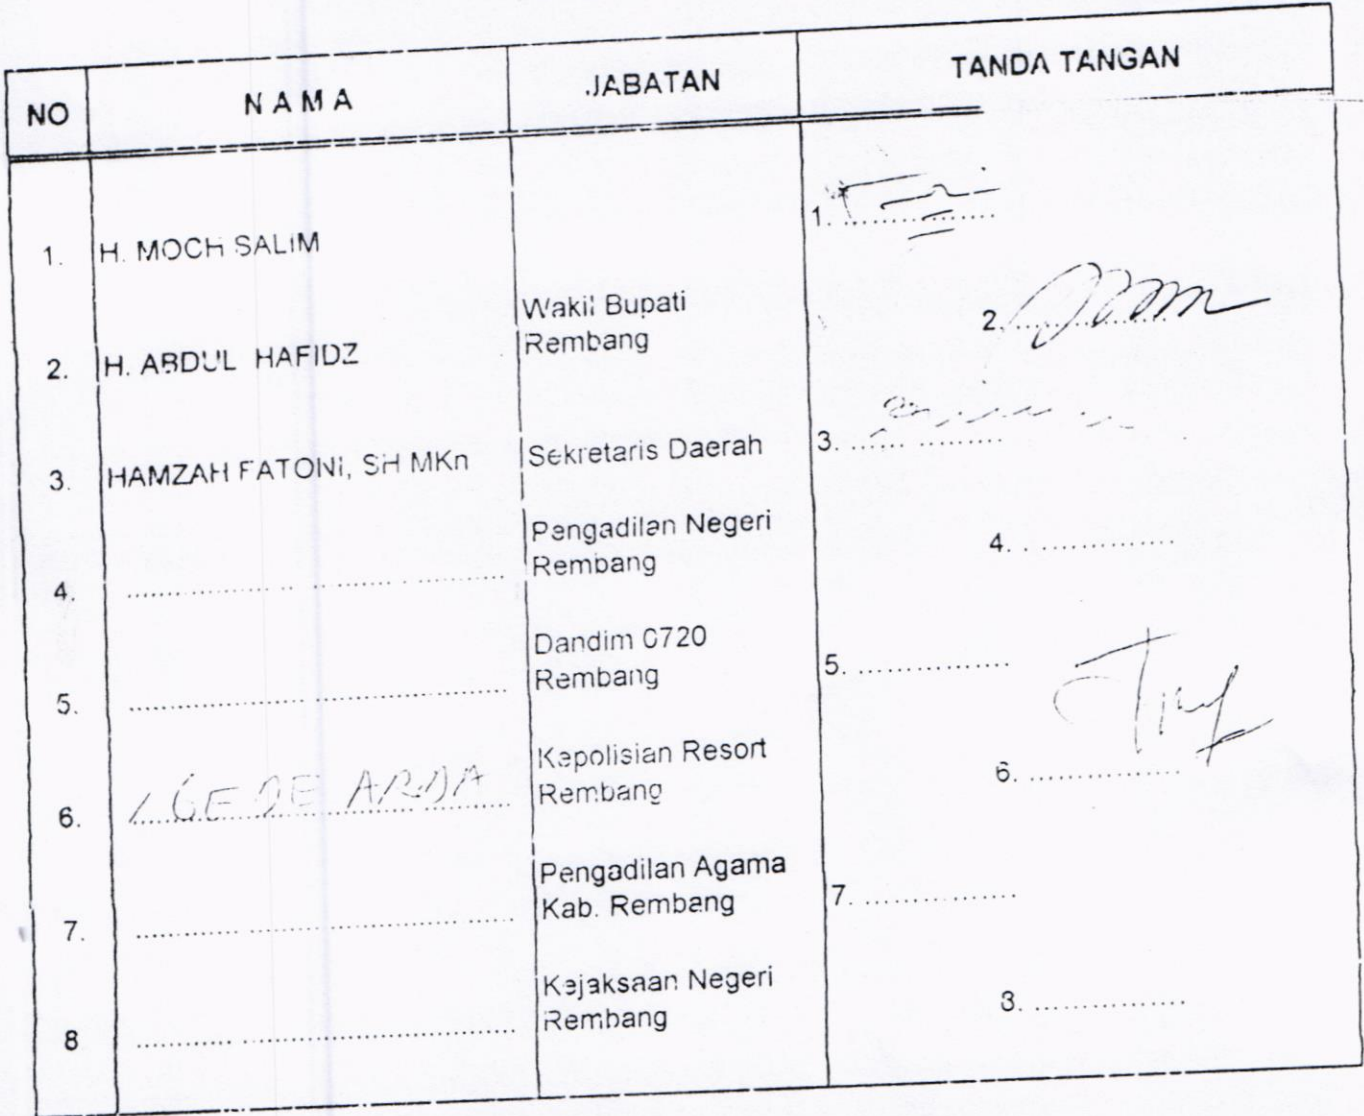 NO NAMA JABATAN TANDA TANGAN
1. H. MOCH SALIM 1. ....................
2. H. ABDUL HAFIDZ Wakil Bupati
Rembang 2. ....................
3. HAMZAH FATONI, SH MKn Sekretaris Daerah 3. ....................
4. .................... Pengadilan Negeri
Rembang 4. ....................
5. .................... Dandim 0720
Rembang 5. ....................
6. GEDE ARDA Kepolisian Resort
Rembang 6. ....................
7. .................... Pengadilan Agama
Kab. Rembang 7. ....................
8 .................... Kejaksaan Negeri
Rembang 8. ....................